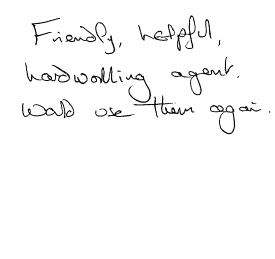 Friendly, helpful,
hardworking agent.
Would use them again.